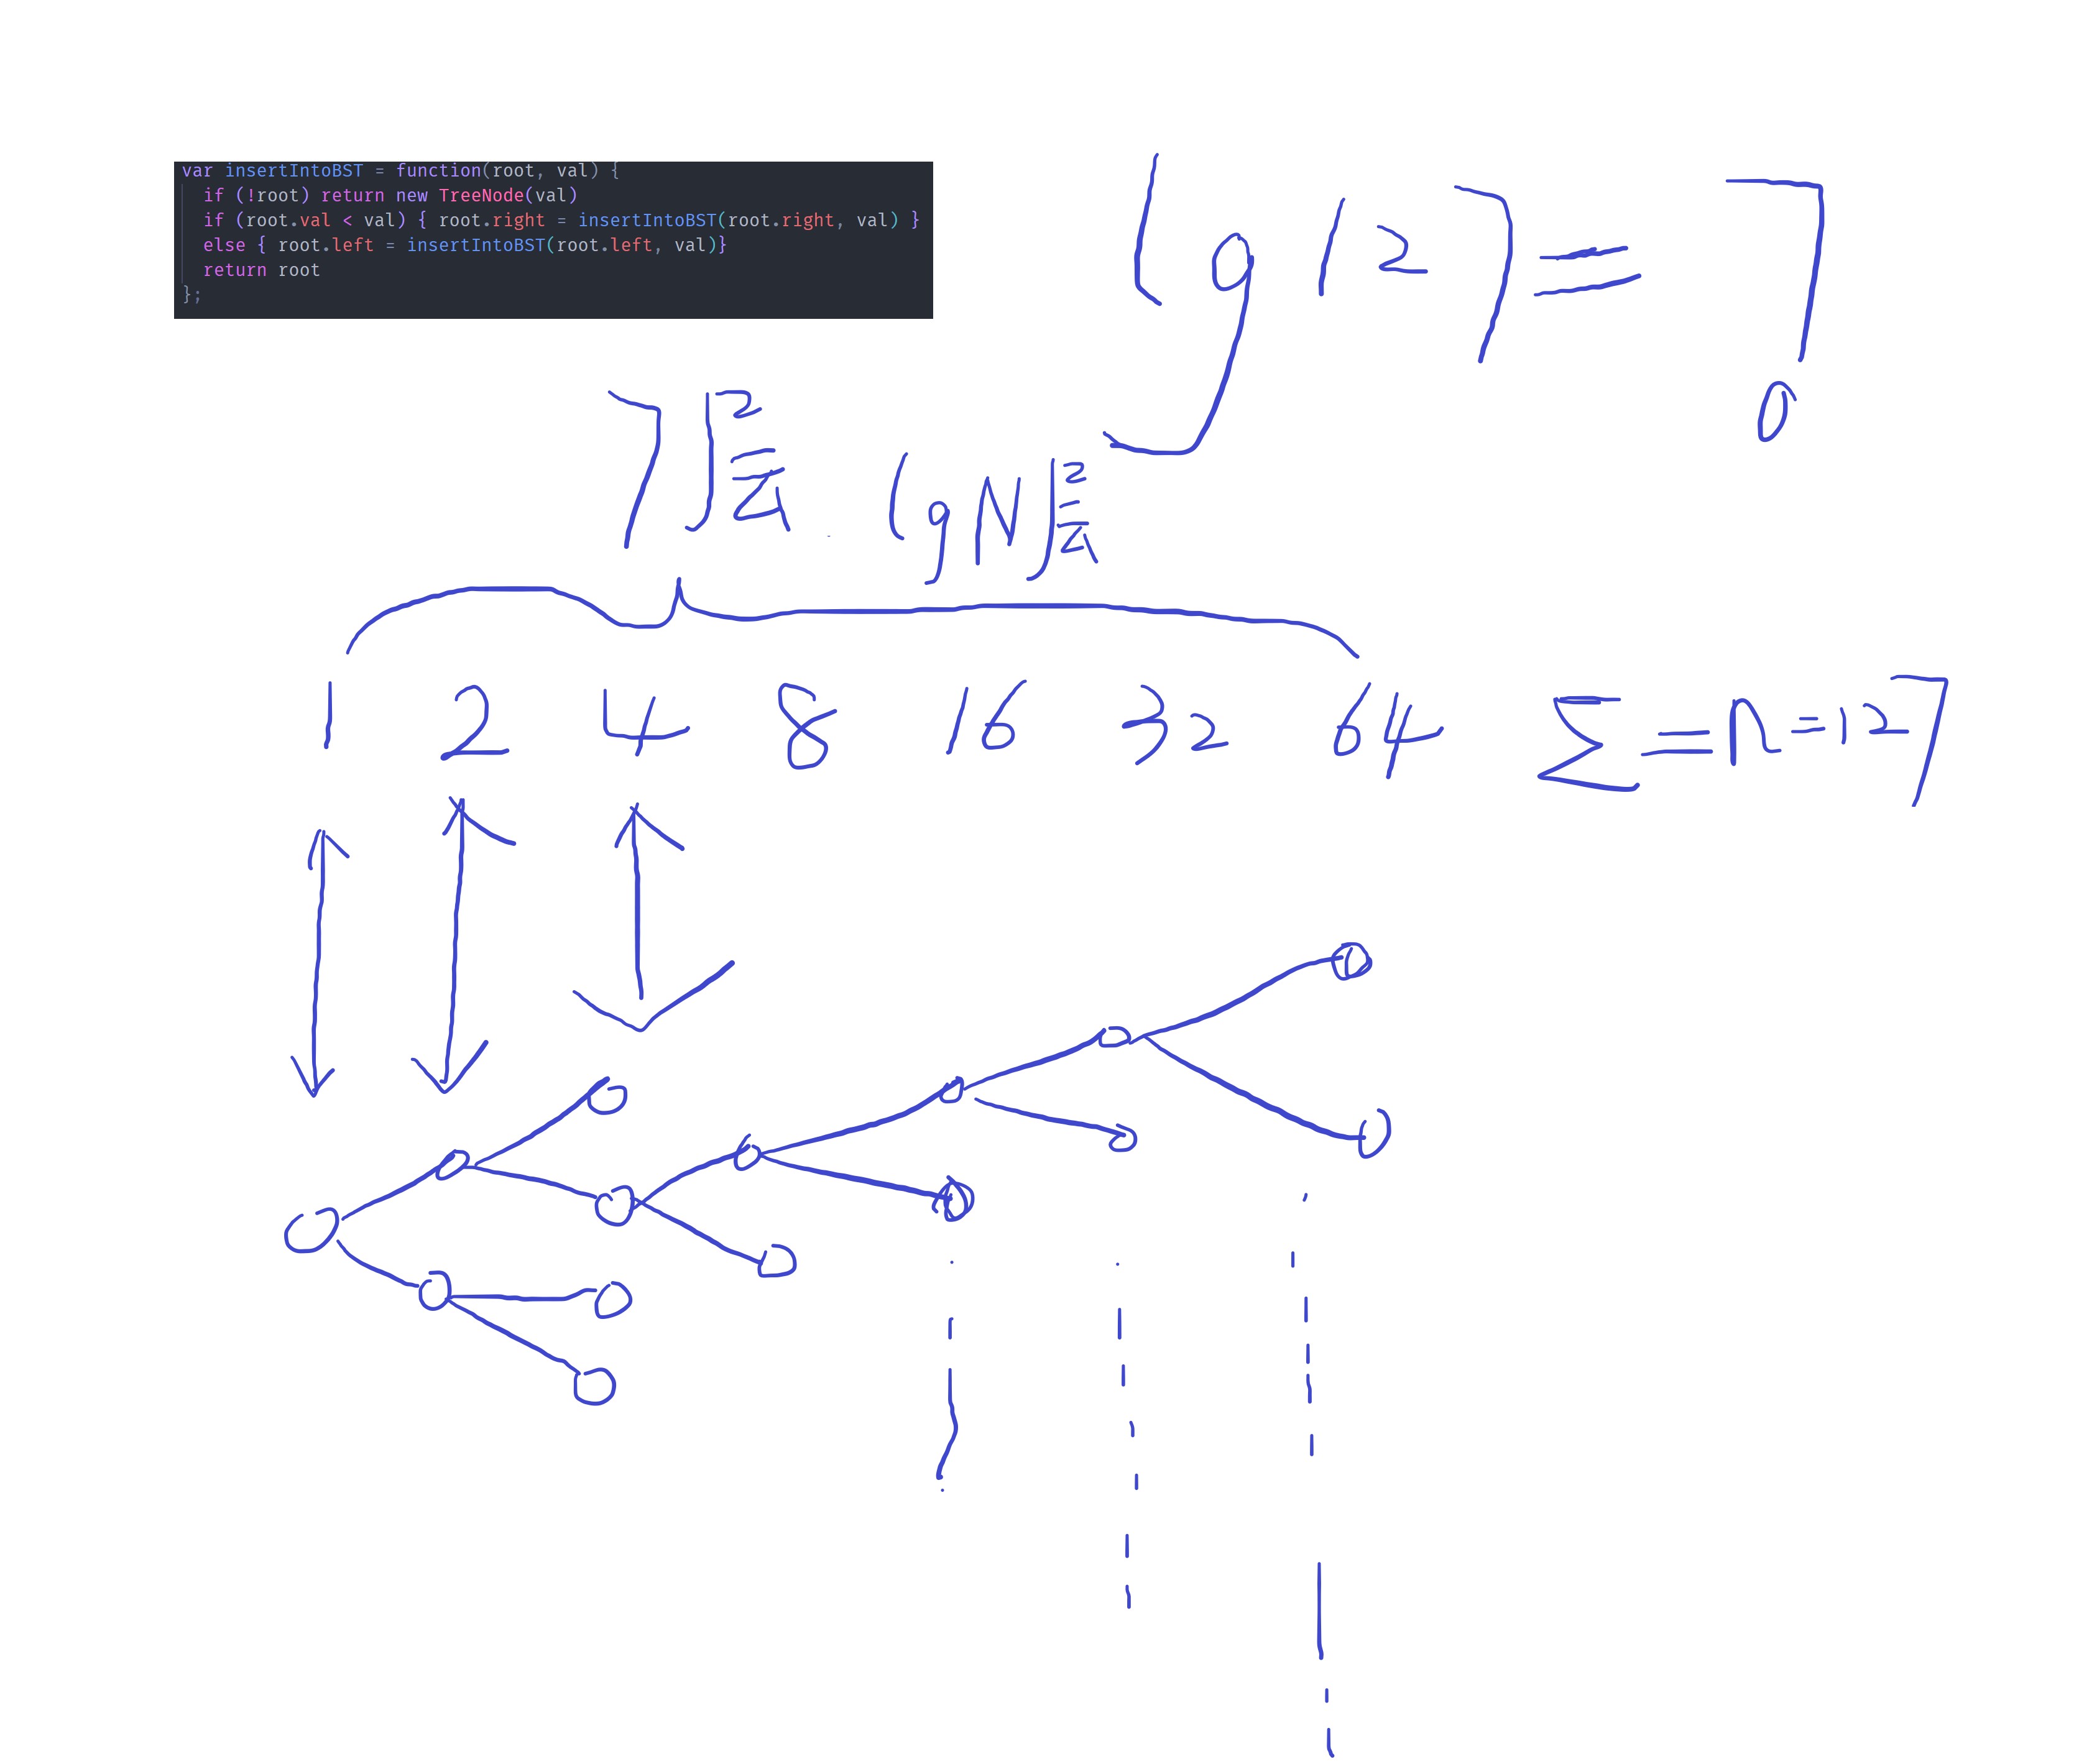 var insertIntoBST = function(root, val) {
if (!root) return new TreeNode(val)
if (root.val < val) { root.right = insertIntoBST(root.right, val) }
else { root.left = insertIntoBST(root.left, val)}
return root
};
lg 127 = 7
0
7层
lgN层
1 2 4 8 16 32 64 Σ=n=127